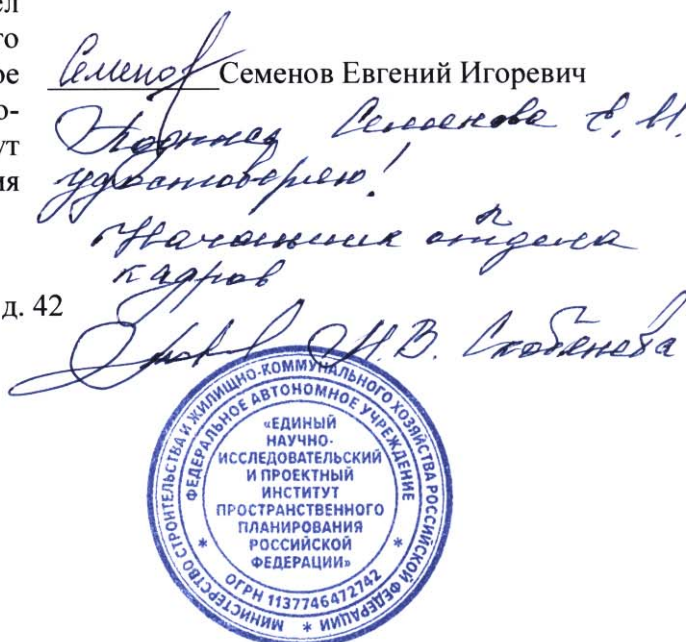 ел
го
ое
о-
ут
ия
Семенов Семенов Евгений Игоревич
Подпись Семенова Е. И.
удостоверяю!
Начальник отдела
кадров
д. 42
Н.В.
МИНИСТЕРСТВО СТРОИТЕЛЬСТВА И ЖИЛИЩНО-КОММУНАЛЬНОГО ХОЗЯЙСТВА РОССИЙСКОЙ ФЕДЕРАЦИИ *
ФЕДЕРАЛЬНОЕ АВТОНОМНОЕ УЧРЕЖДЕНИЕ
«ЕДИНЫЙ
НАУЧНО-
ИССЛЕДОВАТЕЛЬСКИЙ
И ПРОЕКТНЫЙ
ИНСТИТУТ
ПРОСТРАНСТВЕННОГО
ПЛАНИРОВАНИЯ
РОССИЙСКОЙ
ФЕДЕРАЦИИ»
* ОГРН 1137746472742 *